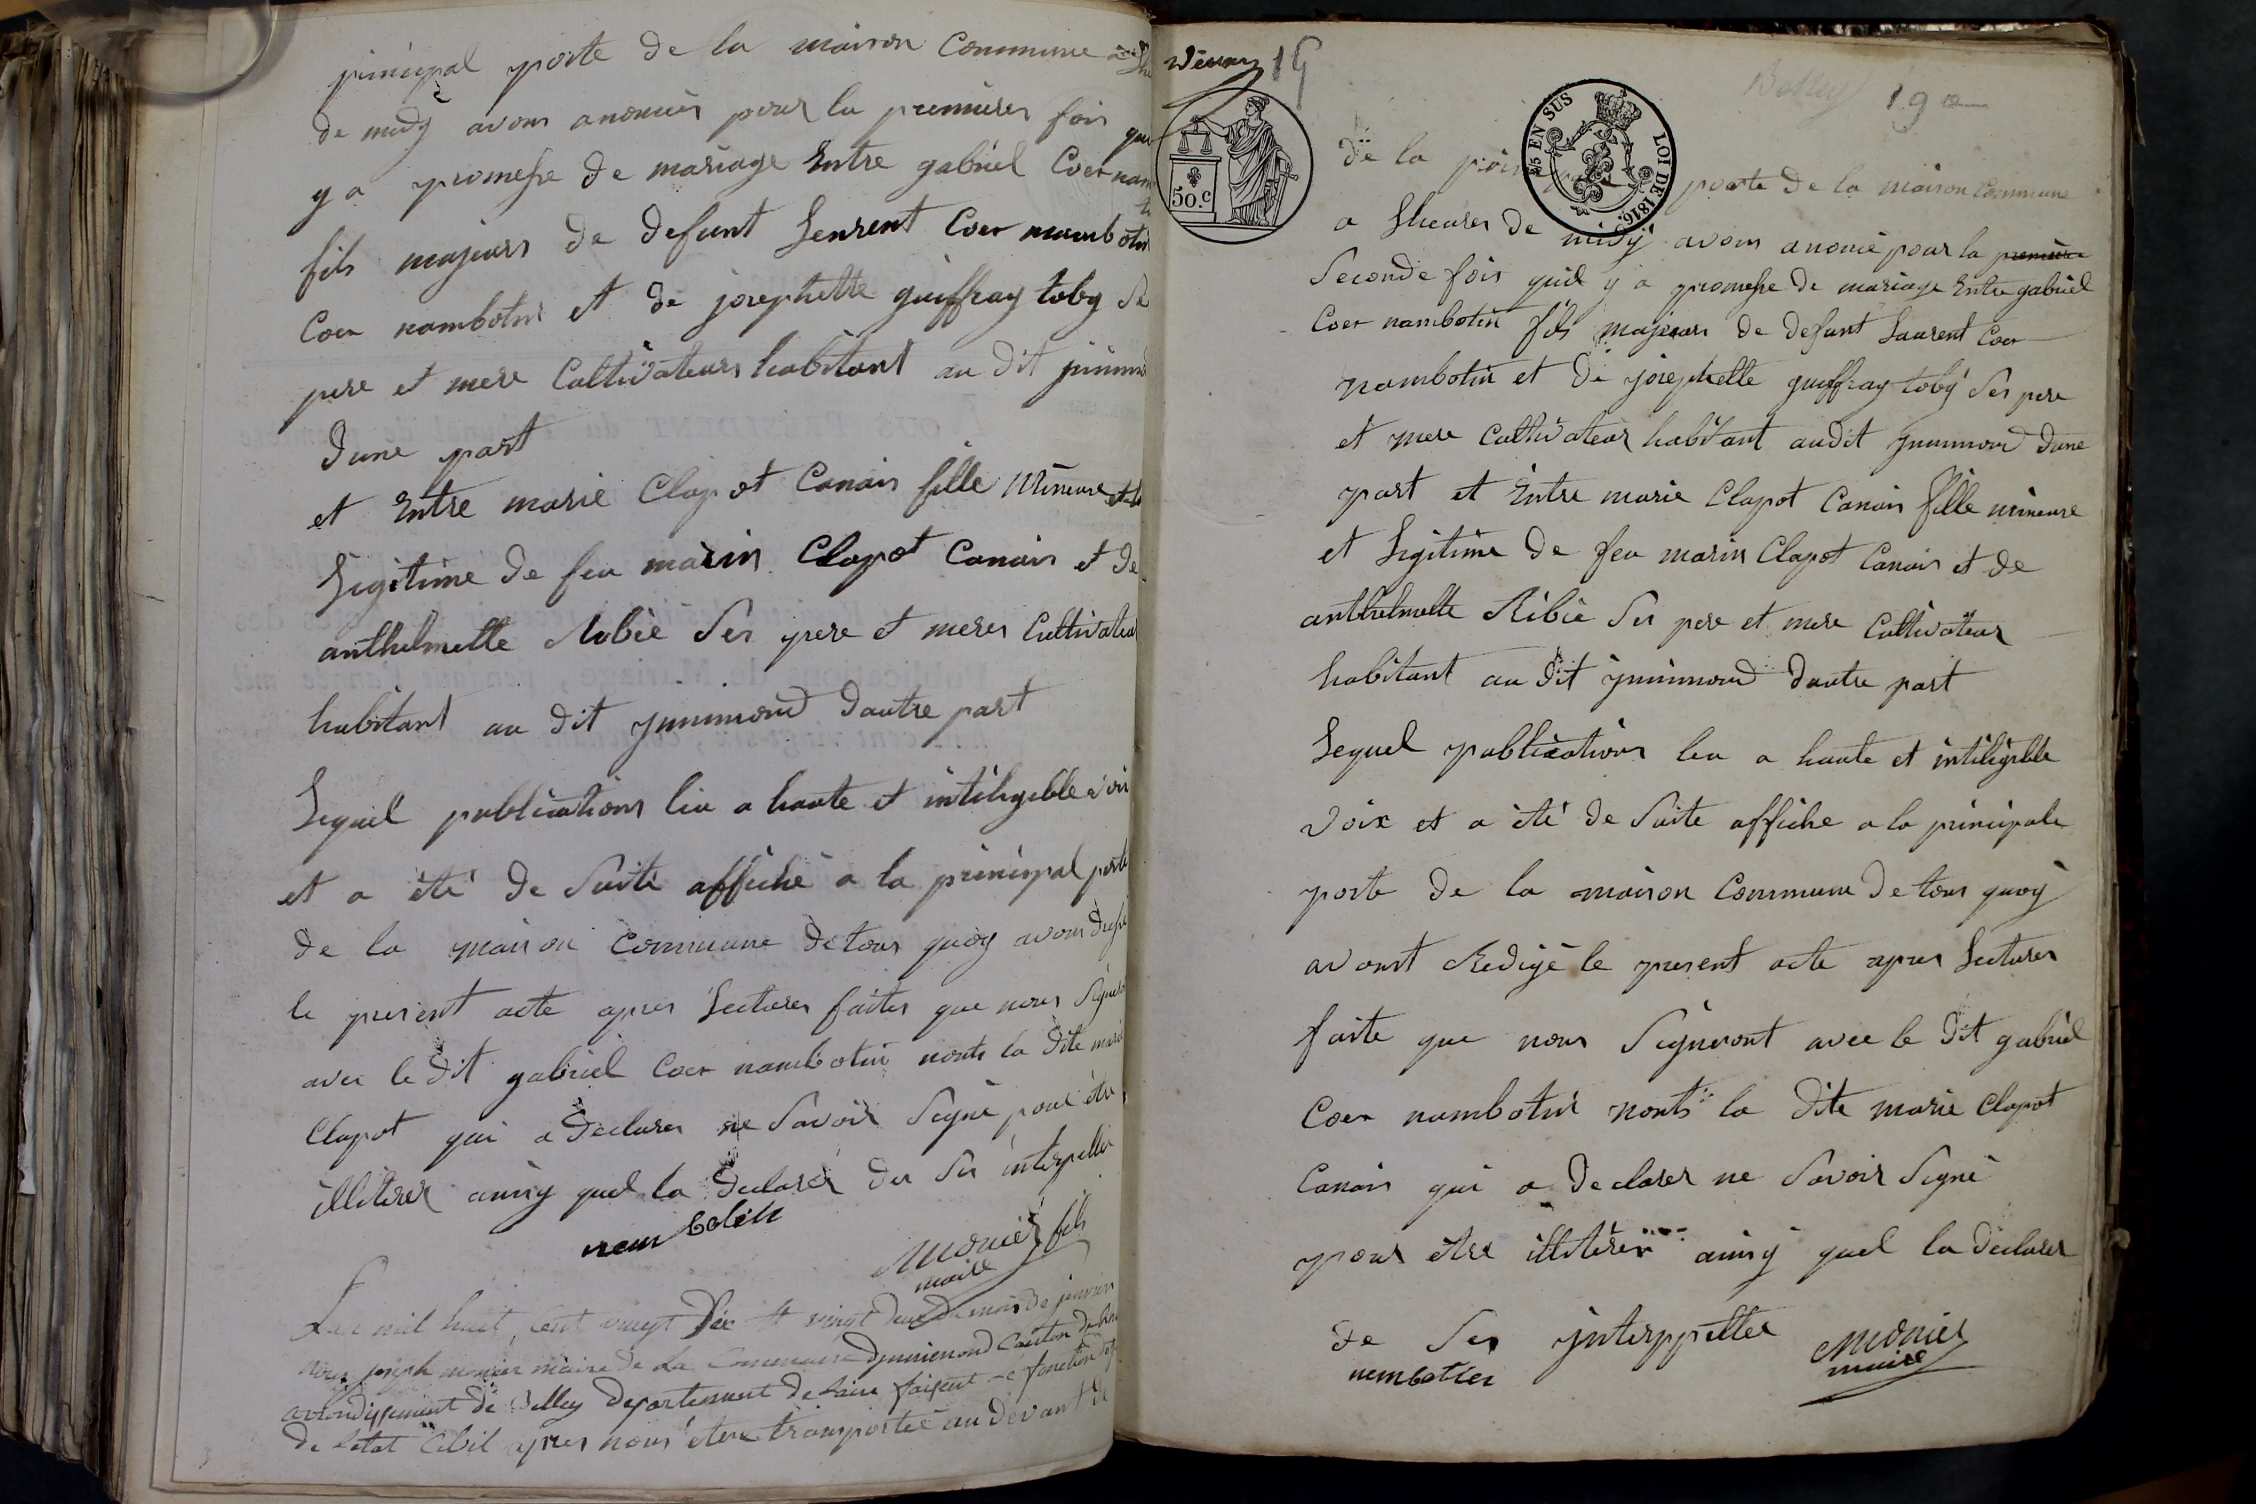 principal porte de la maison Commune a
de midy avons anoncéz pour la premieres fois que
y a promesse de mariage Entre gabriel Coer nam
fils majeurs de defunt Lenrent Coer nambotin
Coer nambotin et de josephette guiffray toby Se
pere et mere Cultivateurs habitant au dit
Dune part
et Entre marie Clapot Canain fille Mineure et
Legitime de feu marin Clapot Canain et de
anthelmette Robie Ses pere et meres Cultivateur
habitant au dit ynnimond dautre part
Lequel publications leu a haute et intiligeble voi
et a été de Suite affiché a la principal porte
de la maison Commune detous quoy avons
le present acte apres Lectures faites que nous Signeron
avec le dit gabriel Coer nambotin nonts la dite marie
Clapot qui a declarer ne Savoir Signé pour être
illiterer ainsy quel la declarer de Ses interpeller
nembotin
Monier fils
maire
Lan mil huit Cent vingt Six et vingt deux du mois de janvier
nous joseph monier maire de La Commune dynnimond Canton de
arrondissement de Belley departement de Lain faisant fonction
de Letat Civil apres nous être transportée au devant de
19
19
50.c
25 EN SUS
LOI DE 1816.
de la porte de la maison Commune
a Lheures de midy avons anoncé pour la premiere
Seconde fois quil y a promesse de mariage Entre gabriel
Coer nambotin fils majeurs de defunt Laurent Coer
nambotin et de josephette guiffray toby Ses pere
et mere Cultivateur habitant audit ynnimond dune
part et Entre marie Clapot Canain fille mineure
et Legitime de feu marin Clapot Canain et de
anthelmette Ribie Ses pere et mere Cultivateur
habitant au dit ynnimond dautre part
Lequel publications leu a haute et intiligible
voix et a été de Suite affiche a la principale
porte de la maison Commune detous quoy
avont Redigé le present acte apres Lectures
faite que nous Signeront avec le dit gabriel
Coer nambotin nonts la dite marie Clapot
Canain qui a declarer ne Savoir Signé
pour être illiterer ainsy quel la declarer
de Ses jnterppeller
nembotin
Monier
maire